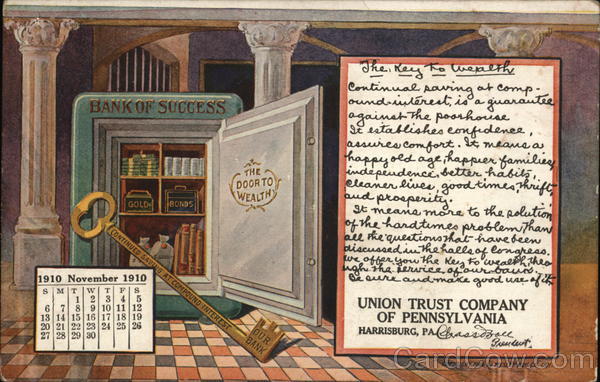 BANK OF SUCCESS
THE
DOOR TO
WEALTH
GOLD
BONDS
CONTINUAL SAVING AT COMPOUND INTEREST
OUR
BANK
1910 November 1910
S M T W T F S
1 2 3 4 5
6 7 8 9 10 11 12
13 14 15 16 17 18 19
20 21 22 23 24 25 26
27 28 29 30
The Key to Wealth
Continual saving at comp-
ound interest, is a guarantee
against the poorhouse
It establishes confidence,
assures comfort. It means a
happy old age, happier families,
independence, better habits,
cleaner lives, good times, thrift
and prosperity.
It means more to the solution
of the hard times problem, than
all the questions that have been
discussed in the halls of Congress.
We offer you the Key to wealth, thro-
ugh the service of our bank
Be sure and make good use of it.
UNION TRUST COMPANY
OF PENNSYLVANIA
HARRISBURG, PA.
President.
CardCow.com